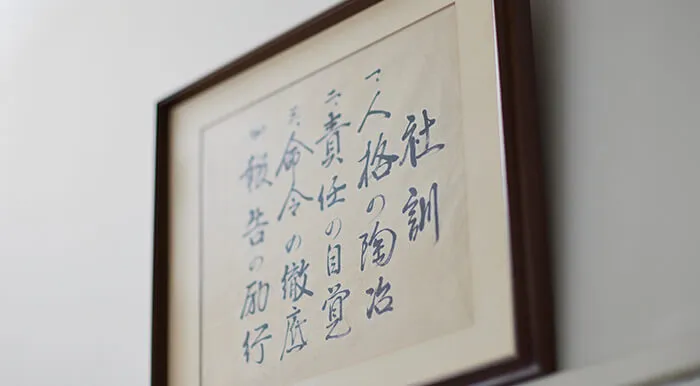 社訓
一、人格の陶冶
二、責任の自覚
三、命令の徹底
四、報告の励行